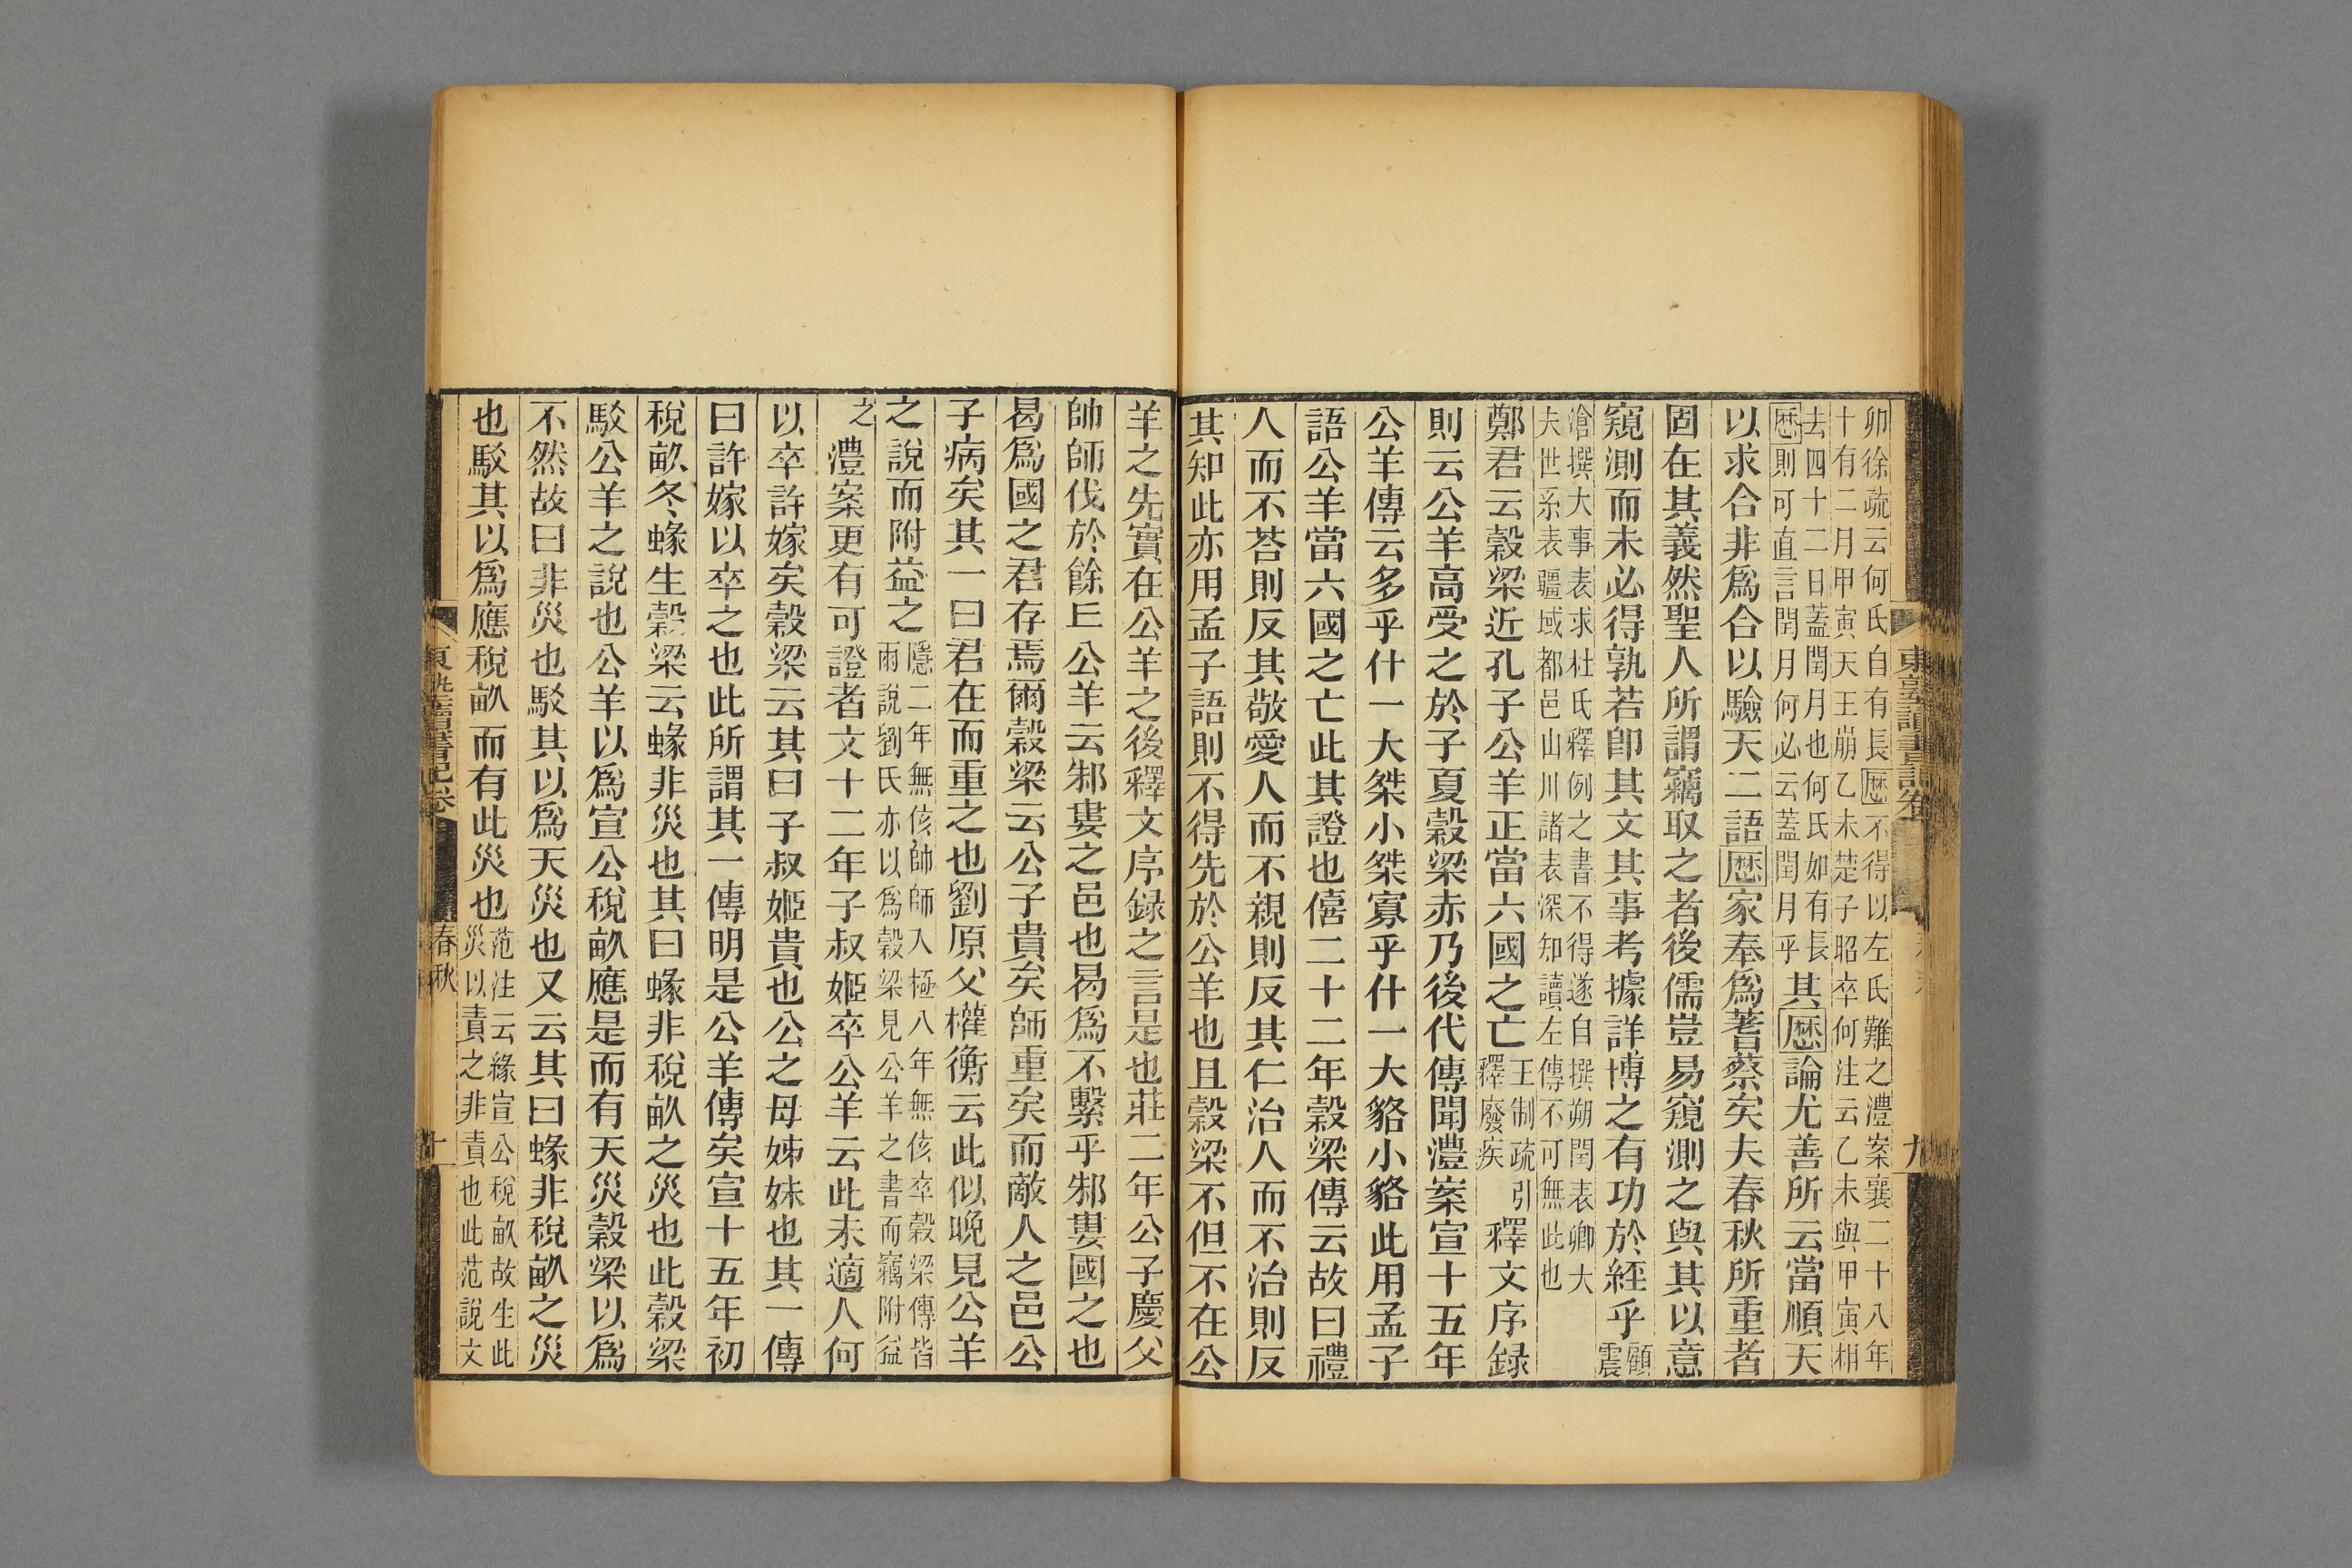 卯徐疏云何氏自有長厯不得以左氏難之澧案襄二十八年
十有二月甲寅天王崩乙未楚子昭卒何注云乙未與甲寅相
去四十二日蓋閏月也何氏如有長
厯則可直言閏月何必云蓋閏月乎
其厯論尤善所云當順天
以求合非爲合以驗天二語厯家奉爲蓍蔡矣夫春秋所重者
固在其義然聖人所謂竊取之者後儒豈易窺測之與其以意
窺測而未必得孰若卽其文其事考據詳博之有功於經乎顧震
滄撰大事表求杜氏釋例之書不得遂自撰朔閏表卿大
夫世系表疆域都邑山川諸表深知讀左傳不可無此也
鄭君云穀梁近孔子公羊正當六國之亡王制疏引釋廢疾釋文序録
則云公羊高受之於子夏穀梁赤乃後代傳聞澧案宣十五年
公羊傳云多乎什一大桀小桀寡乎什一大貉小貉此用孟子
語公羊當六國之亡此其證也僖二十二年穀梁傳云故曰禮
人而不荅則反其敬愛人而不親則反其仁治人而不治則反
其知此亦用孟子語則不得先於公羊也且穀梁不但不在公
東塾讀書記卷
九
羊之先實在公羊之後釋文序録之言是也莊二年公子慶父
帥師伐於餘丘公羊云邾婁之邑也曷爲不繫乎邾婁國之也
曷爲國之君存焉爾穀梁云公子貴矣師重矣而敵人之邑公
子病矣其一曰君在而重之也劉原父權衡云此似晚見公羊
之說而附益之隱二年無侅帥師入極八年無侅卒穀梁傳皆
兩說劉氏亦以爲穀梁見公羊之書而竊附益
之
澧案更有可證者文十二年子叔姬卒公羊云此未適人何
以卒許嫁矣穀梁云其曰子叔姬貴也公之母姊妹也其一傳
曰許嫁以卒之也此所謂其一傳明是公羊傳矣宣十五年初
稅畝冬蝝生穀梁云蝝非災也其曰蝝非稅畝之災也此穀梁
駮公羊之說也公羊以爲宣公稅畝應是而有天災穀梁以爲
不然故曰非災也駮其以爲天災也又云其曰蝝非稅畝之災
也駮其以爲應稅畝而有此災也范注云緣宣公稅畝故生此
災以責之非責也此范說文
東塾讀書記卷
春秋
十